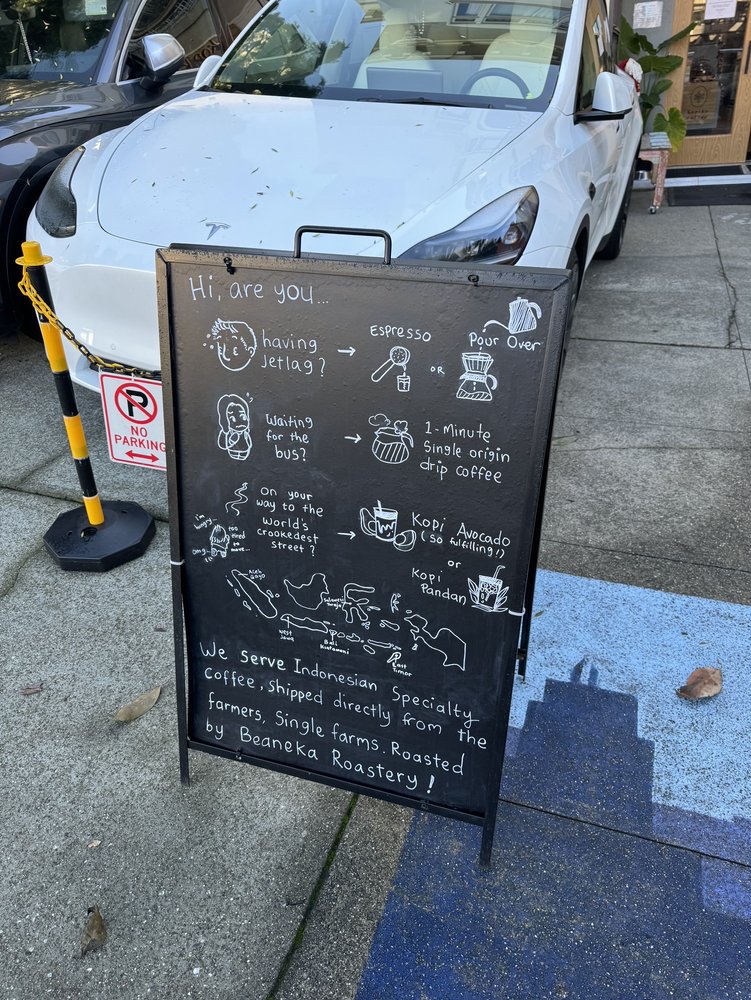 Hi, are you...
having
Jetlag?
Espresso
OR
Pour Over
Waiting
for the
bus?
1-Minute
Single origin
drip coffee
on your
way to the
World's
crookedest
street?
i'm
hungry...
too
tired to
move...
omg...
Kopi Avocado
(so fulfilling!!)
or
Kopi
Pandan
Aceh
Gayo
Sulawesi
Toraja
West
Jawa
Bali
Kintamani
East
Timor
We serve Indonesian Specialty
coffee, shipped directly from the
farmers, Single farms. Roasted
by Beaneka Roastery!
NO
PARKING